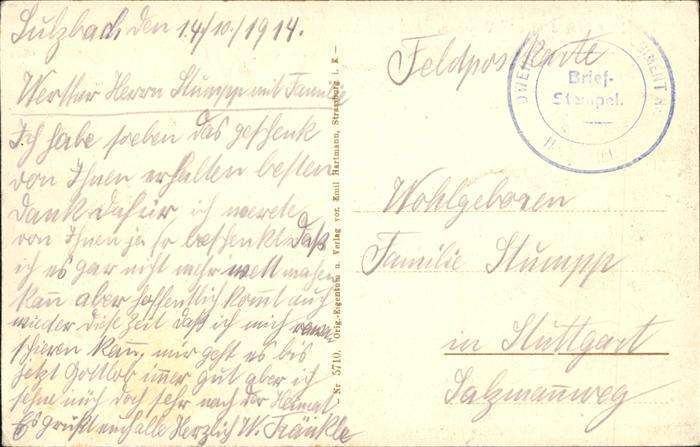 Sulzbach, den 14/10./1914.
Werther Herrn Stumpp mit Familie
Ich habe soeben das geschenk
von Ihnen erhalten besten
Dank dafür, ich werde
von Ihnen ja so beschenkt daß
ich es gar nicht mehr wett machen
kan aber hoffentlich komt auch
wieder diese Zeit daß ich mich revan-
schieren kan, mir geht es bis
jetzt Gottlob imer gut aber ich
sehne mich doch sehr nach der Heimat
Es grüßt euch alle Herzlich W. Fränkle
- Nr 5710. Orig.-Eigentum u. Verlag von Emil Hartmann, Strassburg i. E -
Feldpostkarte
Brief-
Stempel.
Wohlgeboren
Familie Stumpp
in Stuttgart
Salzmannweg